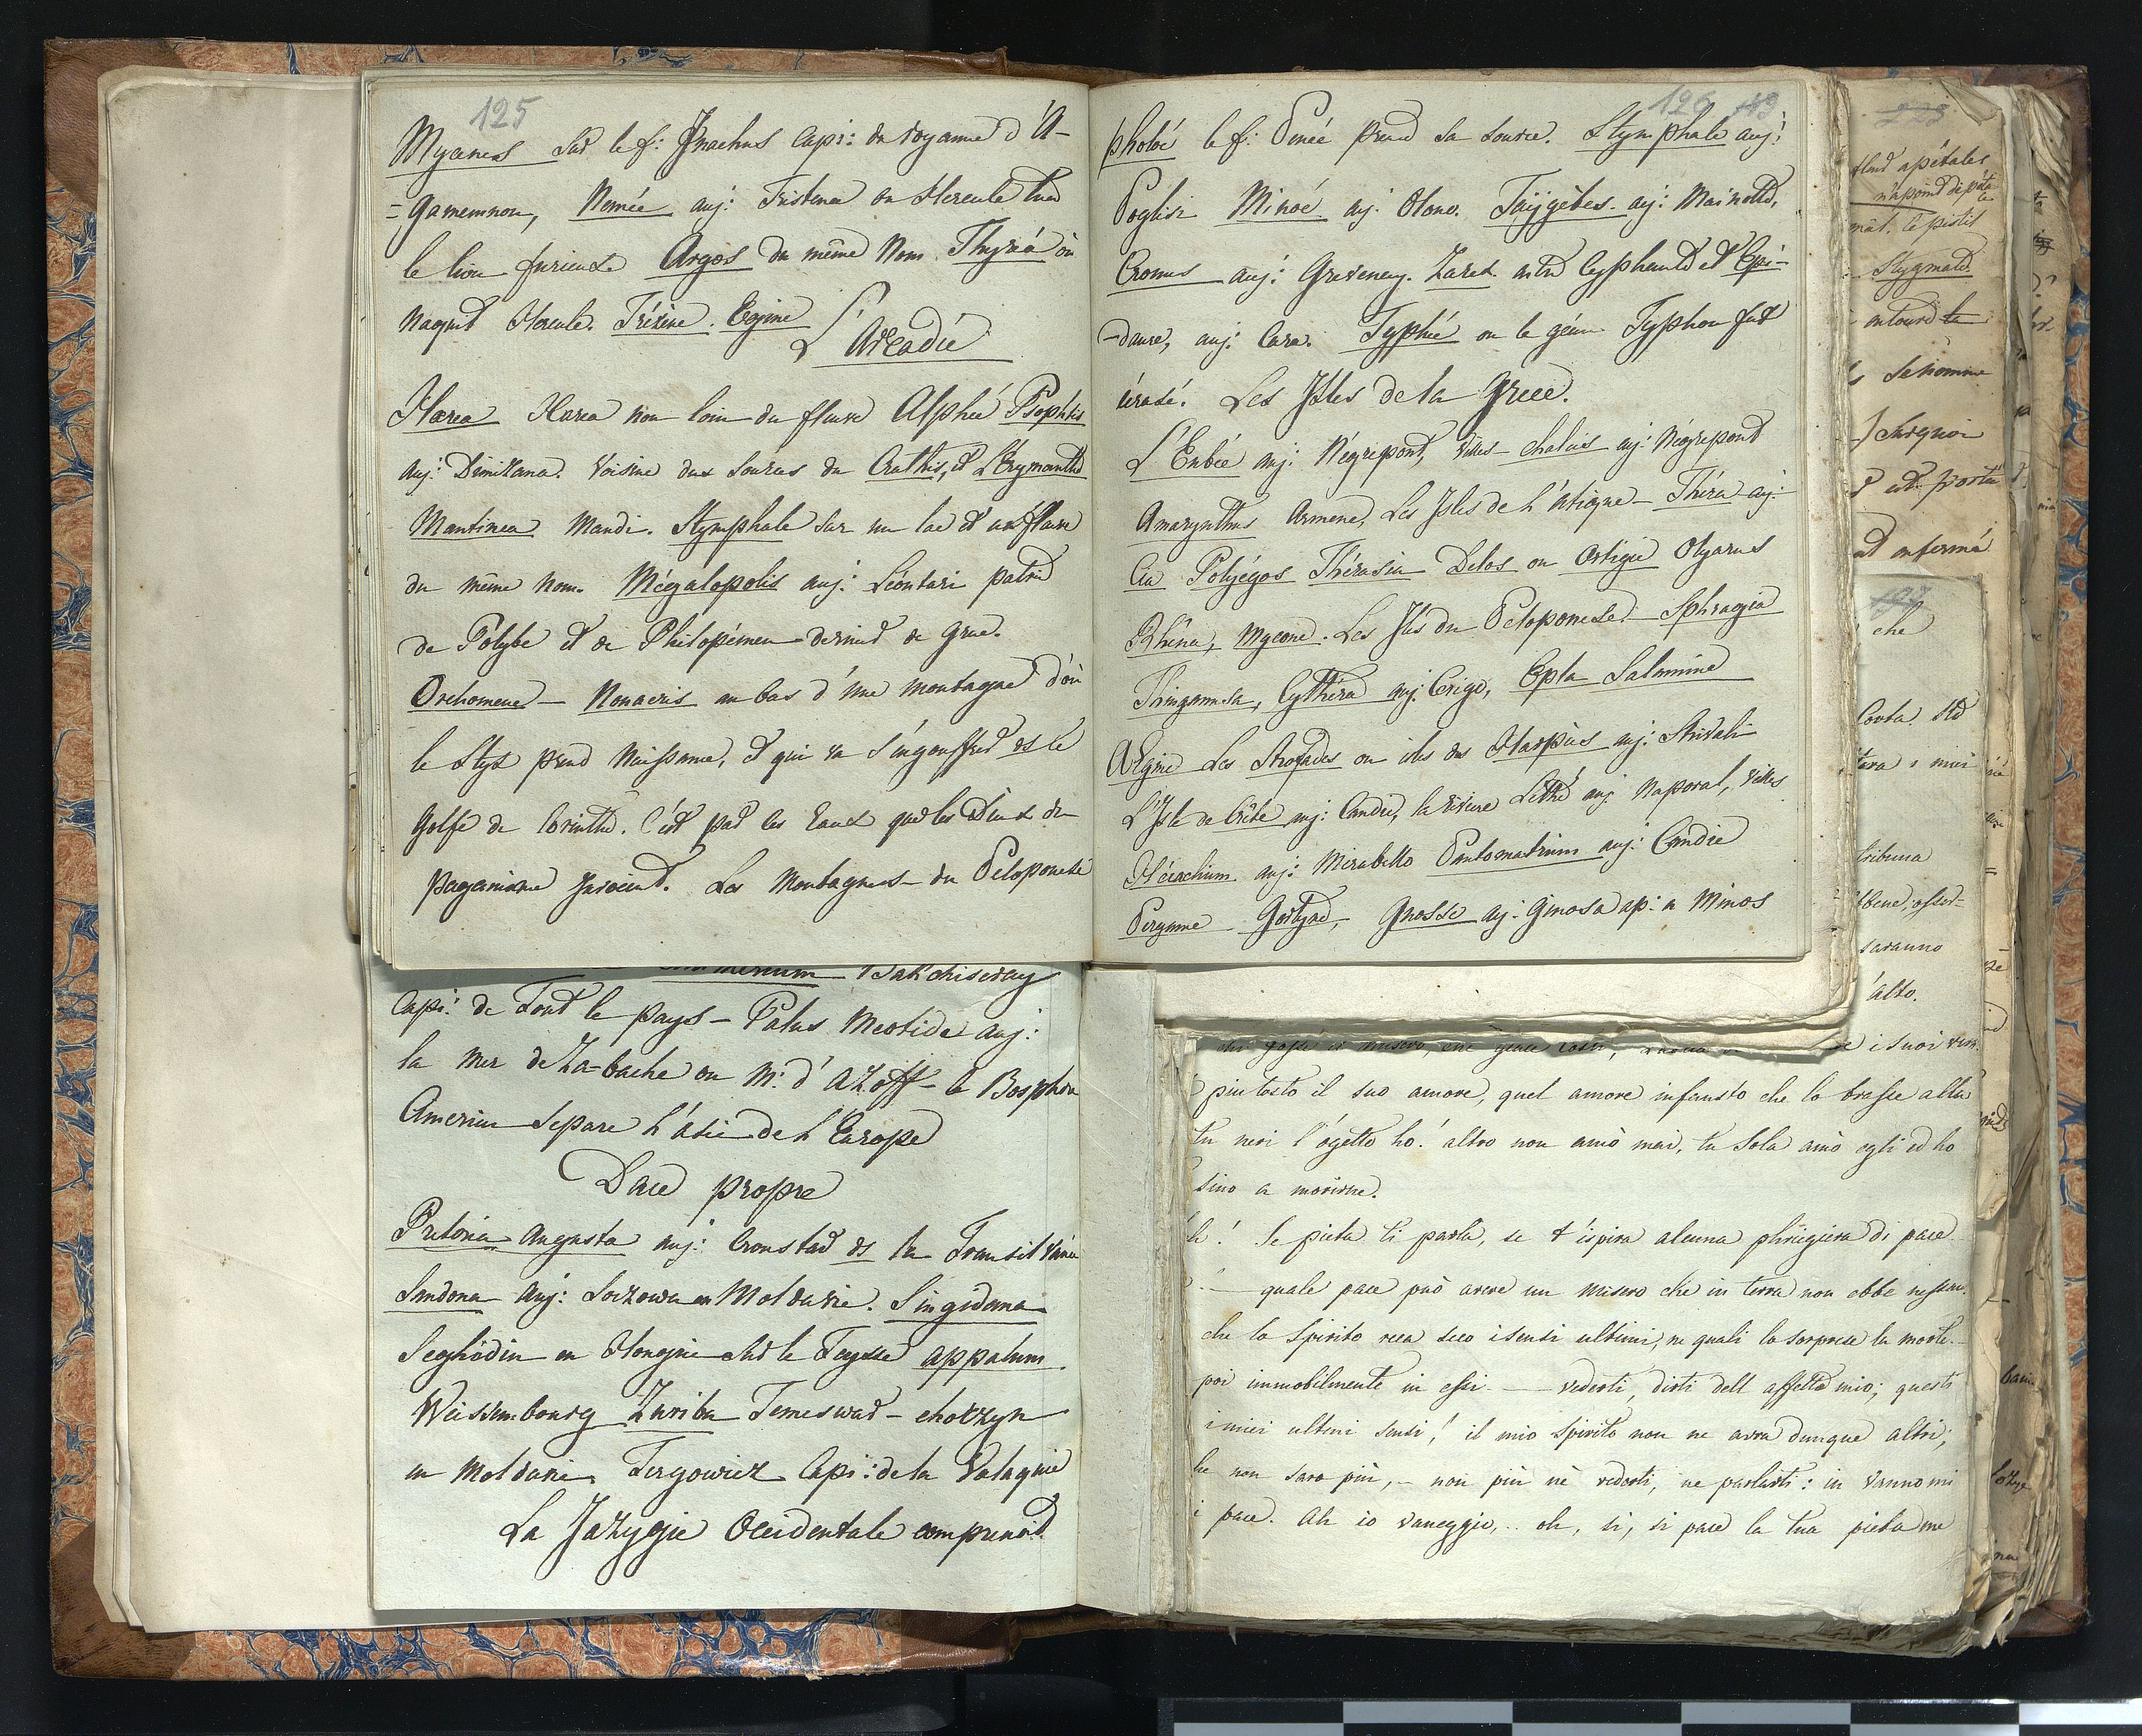 125
Mycenes sur le f: Jnachus Capi: du royaume d'A-
=gamemnon, Nemée auj: Tristena ou Hercule tua
le lion furieux Argos du même Nom. Thyréa où
naquit Hercule. Trézène. Egine
L'Arcadie
Hærea Hærea non loin du fleuve Alphée Psophis
auj: Dimizana. Voisine des sources du Crathis, et L'Erymanthe
Mantinea Mandi. Stymphale sur un lac et un fleuve
du même nom. Mégalopolis auj: Léontari patrie
de Polybe et de Philopémen dernier de Grec.
Orchomene — Nonacris au bas d'une montagne d'où
le Styx prend Naissance, et qui va s'engouffrer ds le
Golfe de Corinthe. C'est par les Eaux que les Dieux du
paganisme juroient. Les Montagnes du Peloponese
126 113
pholoé le f: Penée prend sa source. Stymphale auj:
Poglisi Minoé auj. Olono. Taijgètes auj: Mainotte,
Cronus auj: Greveney. Zarex entre Cyphante et Epi-
-daure, auj: Cara. Typhée ou le géan Typhon fut
écrasé. Les Isles de la Grece.
L'Eubée auj: Négrepont, villes – chalcis auj: Négrepont
Amarynthus Armene, Les Isles de l'atique – Théra auj:
Cia Polyégos Thérasia Delos ou Ortigie Olyarus
Rhéna, Mycone. Les Iles du Peloponese. Sphragia
Thinganusa, Cythera auj: Cerigo, Epla Salamine
AEgine Les Strofades ou iles des Harpies auj: Strivali
L'Isle de Crète auj: Candie, la riviere Léthé auj: Naporal, villes
Héraclium auj: Mirabello Pantomatrium auj: Candie
Pergame Gortyne, Gnosse auj: Ginosa ap: a Minos
Bakchiseray
Capi: de tout le pays – Palus Meotide auj:
la mer de Za-bache ou M: d'Azoff – le Bosphor
Cimerien separe l'asie de l'Europe
Dace propre
Pretoria Augusta auj: Cronstad ds la Transilvanie
Sandona auj: Soczowa en Moldavie. Singidona
Seghédin en Hongrie sur le Teysse Appalum.
Weissembourg Zuriba Temeswar – choczyn
en Moldavie, Tergowicz Capi: de la Valaquie
La Jazygie Occidentale comprenoit
e i suoi
piutosto il suo amore, quel amore infausto che lo trasse alla
tu neri l'ogetto ho! altro non amò mai, tu sola amò egli ed ho
sino a morirne.
Se pieta ti parla, se t'ispira alcuna phregiera di pace
— quale pace può avere un misero che in terra non ebbe nessun.
che lo spirito reca seco i sensi ultimi, ne quali lo sorprese la morte.
poi immobilmente in essi. — vederti, dirti dell affetto mio; questi
i miei ultimi sensi! il mio spirito non ne avra dunque altri;
he non saro più, – non più nè vederti, ne parlarti: in vanno mi
i pace. Ah io vaneggio,.. oh, si, si pace la tua pieta me
223
apétales
le pistil
Stygmate
entouré le
Se nomme
est enfermé
197
che
i miei
tribuna
saranno
alto.